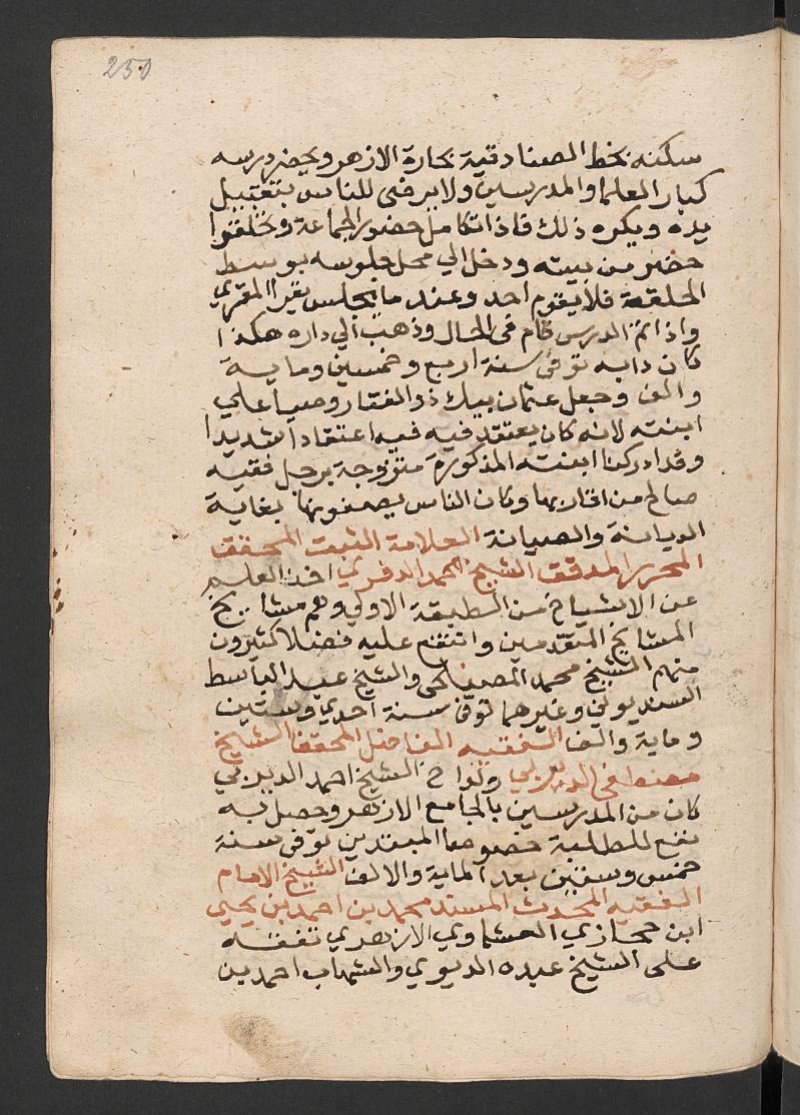 250
سكنه بخط الصنادقية بحارة الازهر ويحضر درسه
كبار العلما والمدرسين ولا يرضى للناس بتقبيل
يده ويكره ذلك فاذا تكامل حضور الجماعة وتحلقوا
حضر من بيته ودخل الي محل جلوسه بوسط
الحلقة فلا يقوم احد وعند ما يجلس يقرا المقري
واذا تم الدرس قام في الحال وذهب الي داره هكذا
كان دابه توفى سنة اربع وخمسين وماية
والف وجعل عثمان بيك ذو الفقار وصيا علي
ابنته لانه كان يعتقد فيه فيه اعتقادا شديدا
وقد ادركنا ابنته المذكورة متزوجة برجل فقيه
صالح من اقاربها وكان الناس يصفونها بغاية
الديانة والصيانة العلامة الثبت المحقق
المحرر المدقق الشيخ محمد الدفري اخذ العلم
عن الاشياخ من الطبقة الاولي وهم مشايخ
المشايخ المتقدمين وانتفع عليه فضلا كثيرون
منهم الشيخ محمد المصيلحى والشيخ عبد الباسط
السنديوني وغيرهما توفى سنة احدي وستين
وماية والف الفقيه الفاضل المحقق الشيخ
مصطفى الديربي ولد اخ الشيخ احمد الديربي
كان من المدرسين بالجامع الازهر وحصل به
نفع للطلبة خصوصا المبتدين توفى سنة
خمس وستين بعد الماية والالف الشيخ الامام
الفقيه المحدث المسند محمد بن احمد بن يحيى
ابن حجازي العشماوي الازهري تفقه
على الشيخ عبده الديوي والشهاب احمد بن